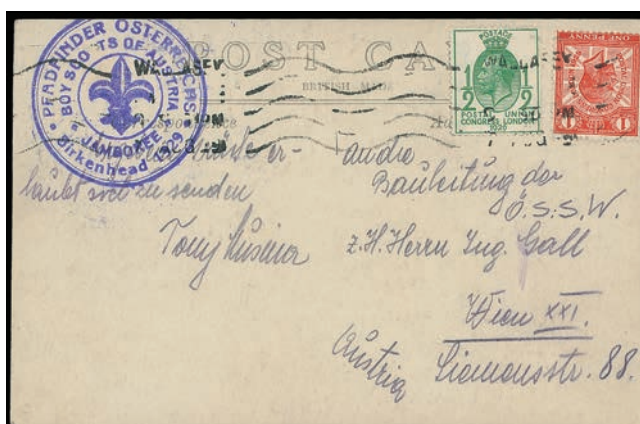 PFADFINDER ÖSTERREICHS
BOY SCOUTS OF AUSTRIA
JAMBOREE
Birkenhead 1929
POST CA
BRITISH MADE
WALLASEY
WALLASEY
POSTAGE
1/2 1/2
POSTAL UNION
CONGRESS LONDON
1929
ONE PENNY
1 1
er-
laubt sich zu senden
Tony
an die
Bauleitung der
Ö.S.S.W.
z.H. Herrn Ing. Gall
Wien XXI.
Siemensstr. 88.
Austria